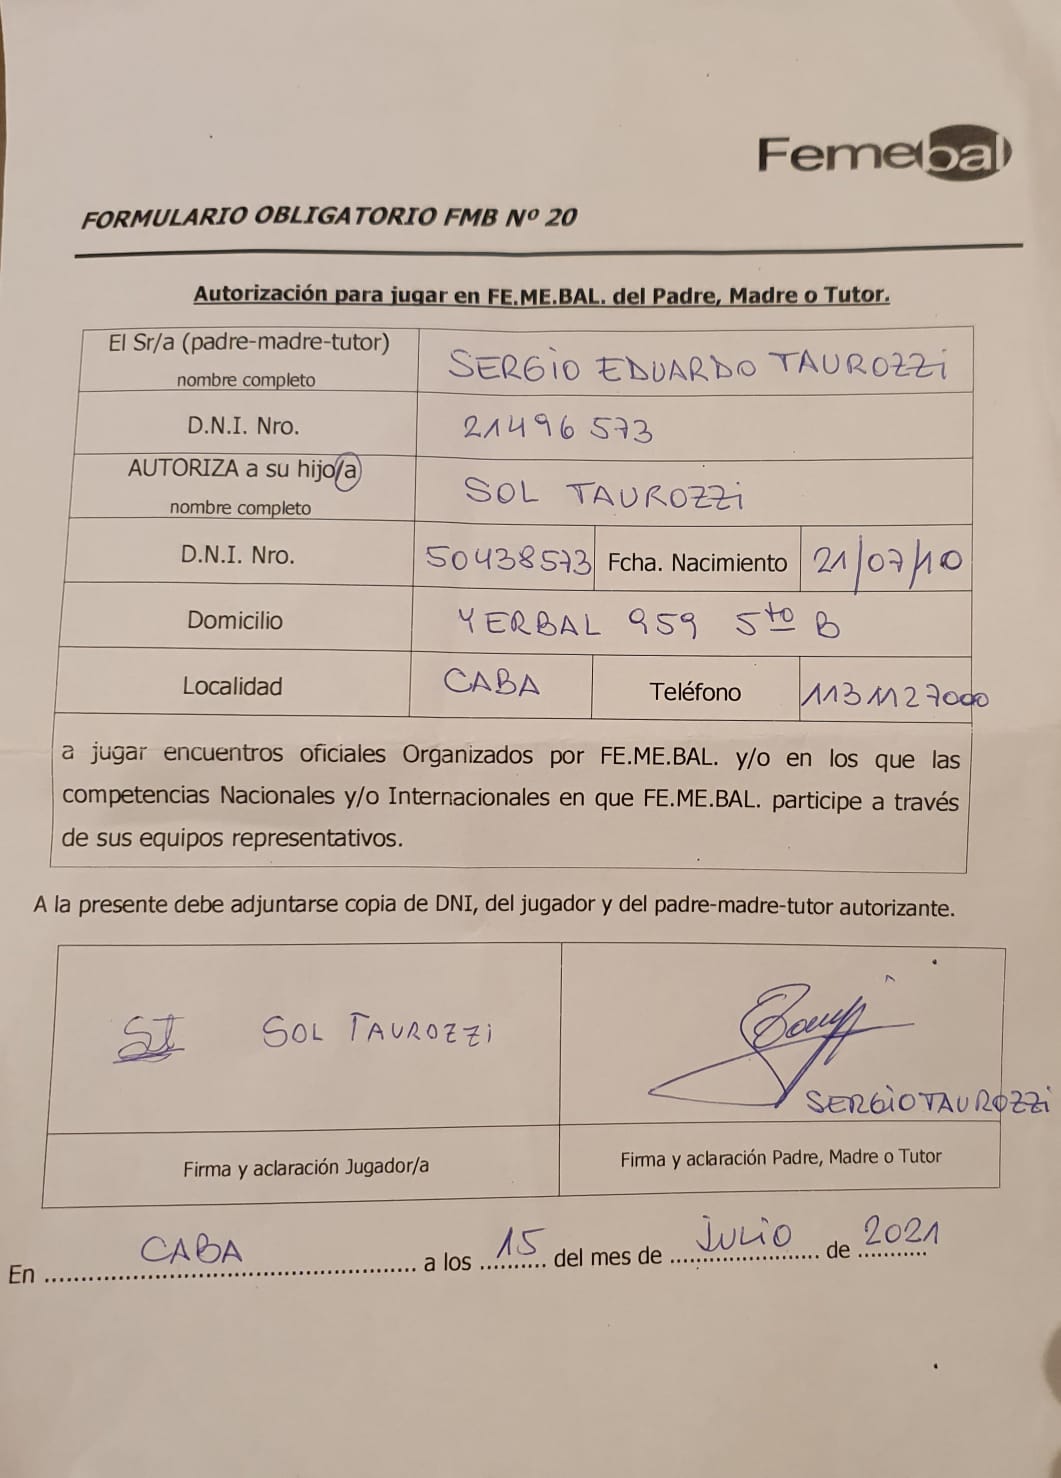 Femebal
FORMULARIO OBLIGATORIO FMB Nº 20
Autorización para jugar en FE.ME.BAL. del Padre, Madre o Tutor.
El Sr/a (padre-madre-tutor)
nombre completo
SERGIO EDUARDO TAUROZZI
D.N.I. Nro.
21496573
AUTORIZA a su hijo/a
nombre completo
SOL TAUROZZI
D.N.I. Nro.
50438573
Fcha. Nacimiento
21/07/10
Domicilio
YERBAL 959 5to B
Localidad
CABA
Teléfono
1131127000
a jugar encuentros oficiales Organizados por FE.ME.BAL. y/o en los que las
competencias Nacionales y/o Internacionales en que FE.ME.BAL. participe a través
de sus equipos representativos.
A la presente debe adjuntarse copia de DNI, del jugador y del padre-madre-tutor autorizante.
SOL TAUROZZI
SERGIO TAUROZZI
Firma y aclaración Jugador/a
Firma y aclaración Padre, Madre o Tutor
En CABA a los 15 del mes de JULIO de 2021